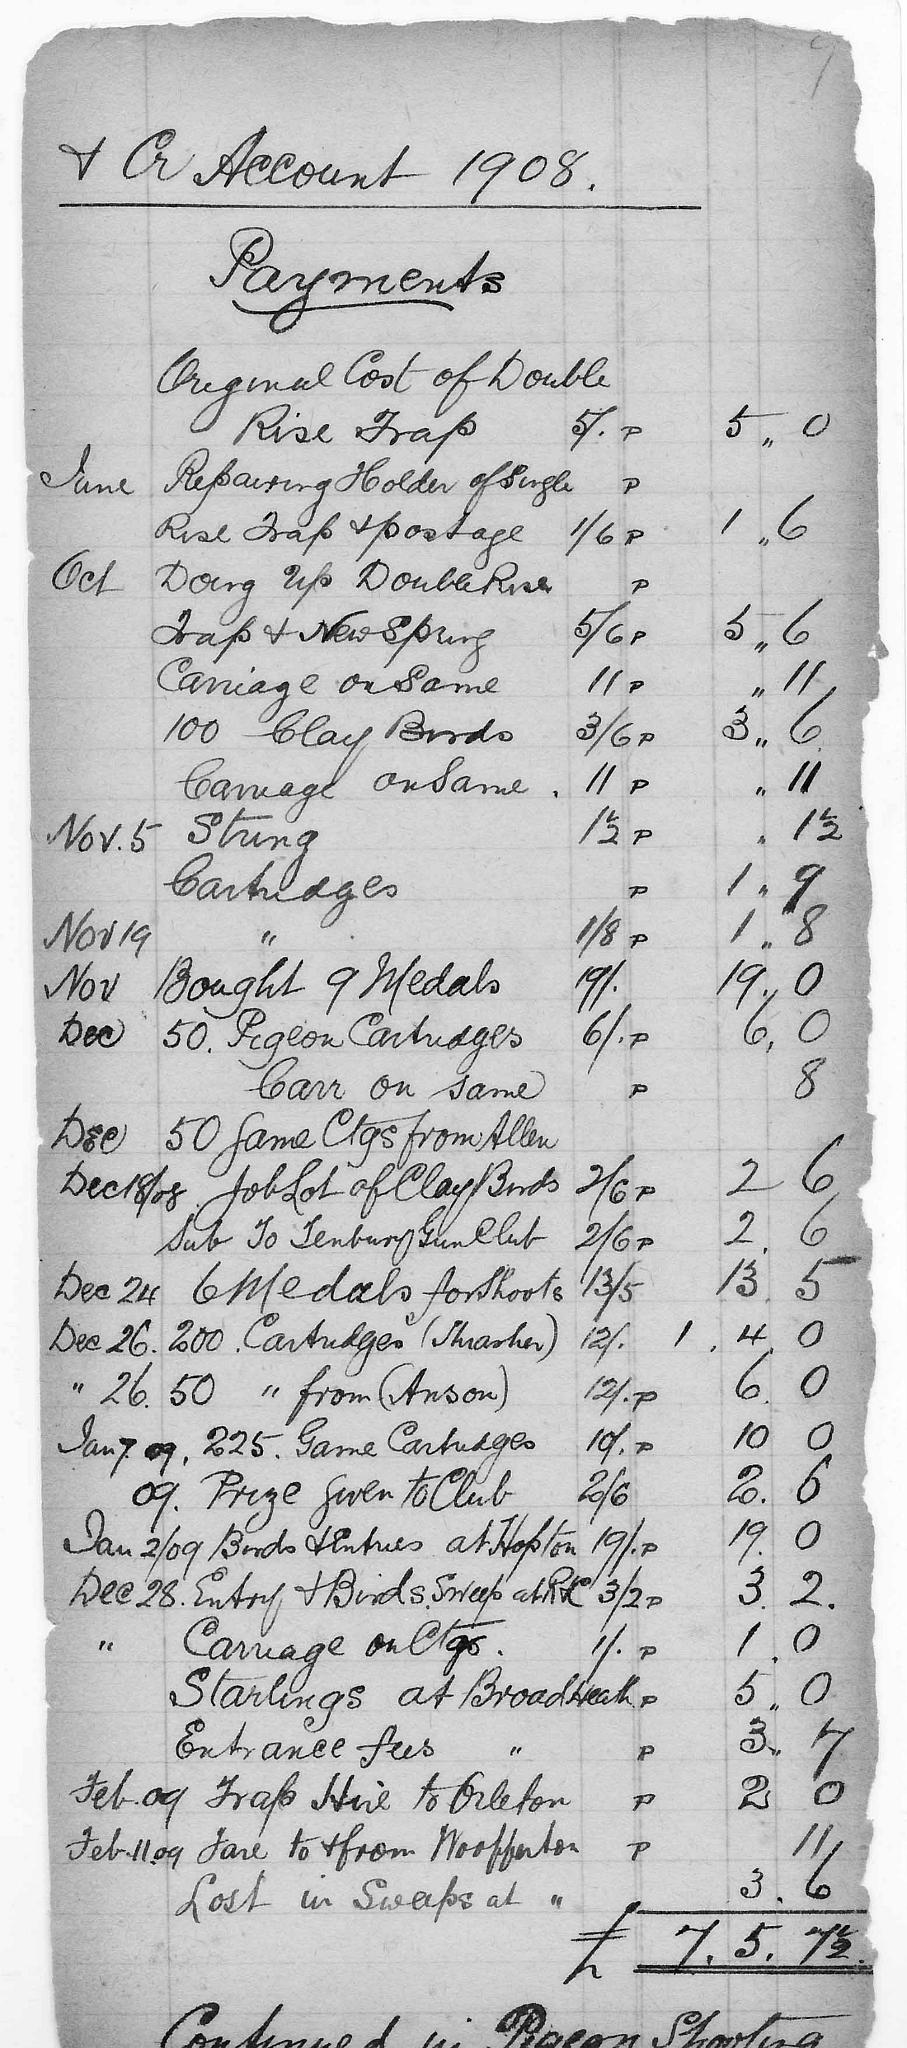 9
& Cr Account 1908.
Payments
Original Cost of Double
Rise Trap 5/. P 5 " 0
June Repairing Holder of Single P
Rise Trap & postage 1/6 P 1 " 6
Oct Doing Up Double Rise P
Trap & New Spring 5/6 P 5 " 6
Carriage on Same 11 P " 11
100 Clay Birds 3/6 P 3 " 6
Carriage on Same . 11 P " 11
Nov. 5 String 1½ P " 1½
Cartridges P 1 " 9
Nov 19 " 1/8 P 1 " 8
Nov Bought 9 Medals 19/. 19. 0
Dec 50. Pigeon Cartridges 6/. P 6, 0
Carr on same P 8
Dec 50 Game Ctgs from Allen
Dec 18/08 Job Lot of Clay Birds 2/6 P 2 6
Sub To Tenbury Gun Club 2/6 P 2. 6
Dec 24 6 Medals for Shoots 13/5 13. 5
Dec 26. 200. Cartridges (Thrasher) 12/. 1. 4. 0
" 26. 50 " from (Anson) 12/. P 6. 0
Jan 7. 09. 225. Game Cartridges 10/. P 10 0
09. Prize given to Club 2/6 2. 6
Jan 2/09 Birds & Entries at Hopton 19/. P 19. 0
Dec 28. Entry & Birds. Sweep at 3/2 P 3. 2.
" Carriage on Ctgs. 1/. P 1. 0
Starlings at Broadheath P 5 " 0
Entrance fees " P 3 " 7
Feb. 09 Trap Hire to Orleton P 2 0
Feb. 11. 09 Fare to & from Woofferton P 11
Lost in Sweeps at " 3. 6
£ 7. 5. 7½
Continued in Pigeon Shooting